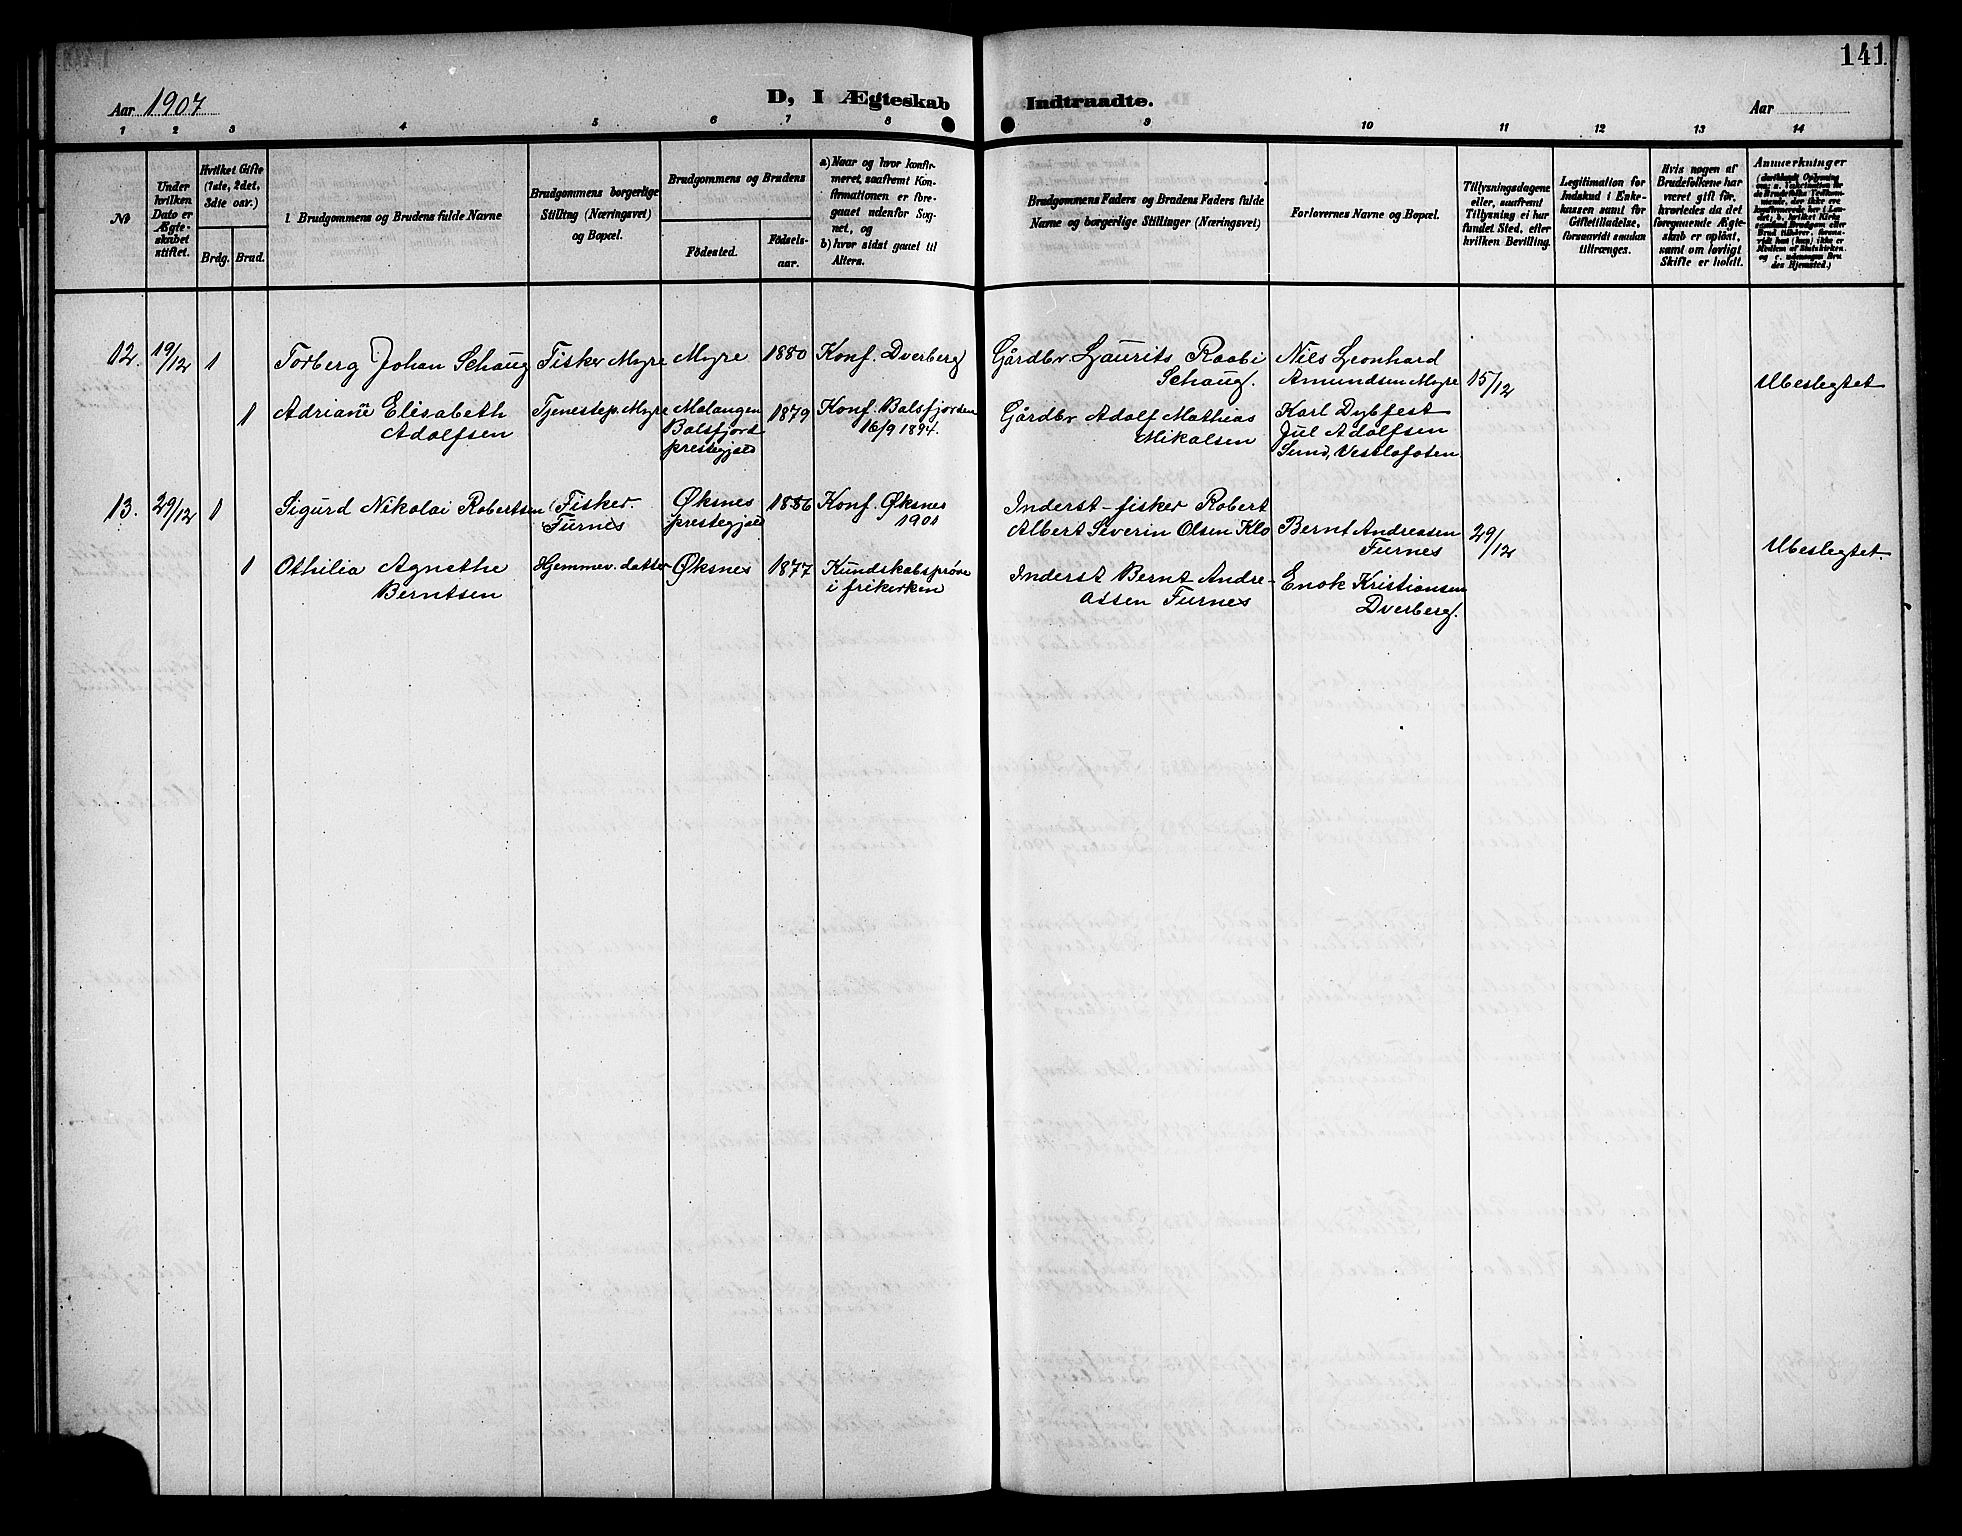 141
Aar 1907
D, I Ægteskab Indtraadte.
Aar
1 2 3 4 5 6 7 8 9 10 11 12 13 14
№
Under hvilken Dato er Ægteskabet stiftet.
Hvilket Gifte (1ste, 2det, 3die osv.)
Brdg. Brud.
Brudgommens og Brudens fulde Navne
Brudgommens borgerlige Stilling (Næringsvei) og Bopæl.
Brudgommens og Brudens
Födested.
Födselsaar.
a) Naar og hvor konfirmeret, saafremt Konfirmationen er foregaaet udenfor Sognet, og
b) hvor sidst gaaet til Alters.
Brudgommens Faders og Brudens Faders fulde Navne og borgerlige Stillinger (Næringsvei)
Forlovernes Navne og Bopæl.
Tillysningsdagene eller, saafremt Tillysning ei har fundet Sted, efter hvilken Bevilling.
Legitimation for Indskud i Enkekassen samt for Giftetilladelse, forsaavidt saadan tiltrænges.
Hvis nogen af Brudefolkene har været gift för, hvorledes da det foregaaende Ægteskab er oplöst, samt om lovligt Skifte er holdt.
Anmærkninger
12. 19/12 1 Torberg Johan Schaug Fisker Myre Myre 1880 Konf. Dverberg Gårdbr Laurits Raabi Schaug. Nils Leonhard Amundsen Myre 15/12 Ubeslegtet
1 Adriane Elisabeth Adolfsen Tjenestep. Myre Malangen Balsfjord prestegjæld 1879 Konf. Balsfjorden 16/9 1894. Gårdbr Adolf Mathias Mikalsen Karl Dybfest Jul Adolfsen Sund, Vestlofoten
13. 29/12 1 Sigurd Nikolai Robertsen Fisker. Furnes Øksnes prestegjæld 1886 Konf. Øksnes 1901 Inderst-fisker Robert Albert Severin Olsen Klo Bernt Andreassen Furnes 29/12 Ubeslegtet.
1 Othilia Agnethe Berntsen Hjemmev. datter Øksnes 1877 Kundskabsprøve i frikirken Inderst Bernt Andreassen Furnes Enok Kristiansen Dverberg.